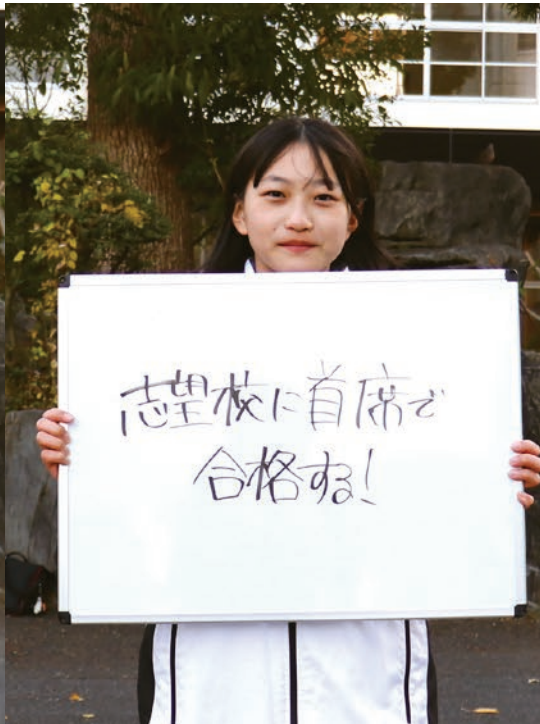 志望校に首席で
合格する!